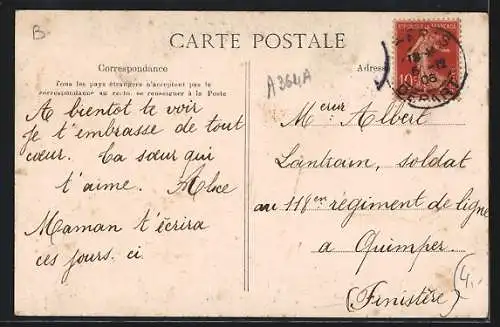 B.
CARTE POSTALE
Correspondance
Tous les pays étrangers n'acceptent pas le
correspondance au recto, se renseigner à la Poste
A bientot te voir
je t'embrasse de tout
cœur. Ta sœur qui
t'aime. Alice
Maman t'écrira
ces jours. ci.
Adres
A364A
10
06
DEPART
Meur Albert
soldat
au 118en régiment de ligne
a Quimper.
(Finistère)
4.-